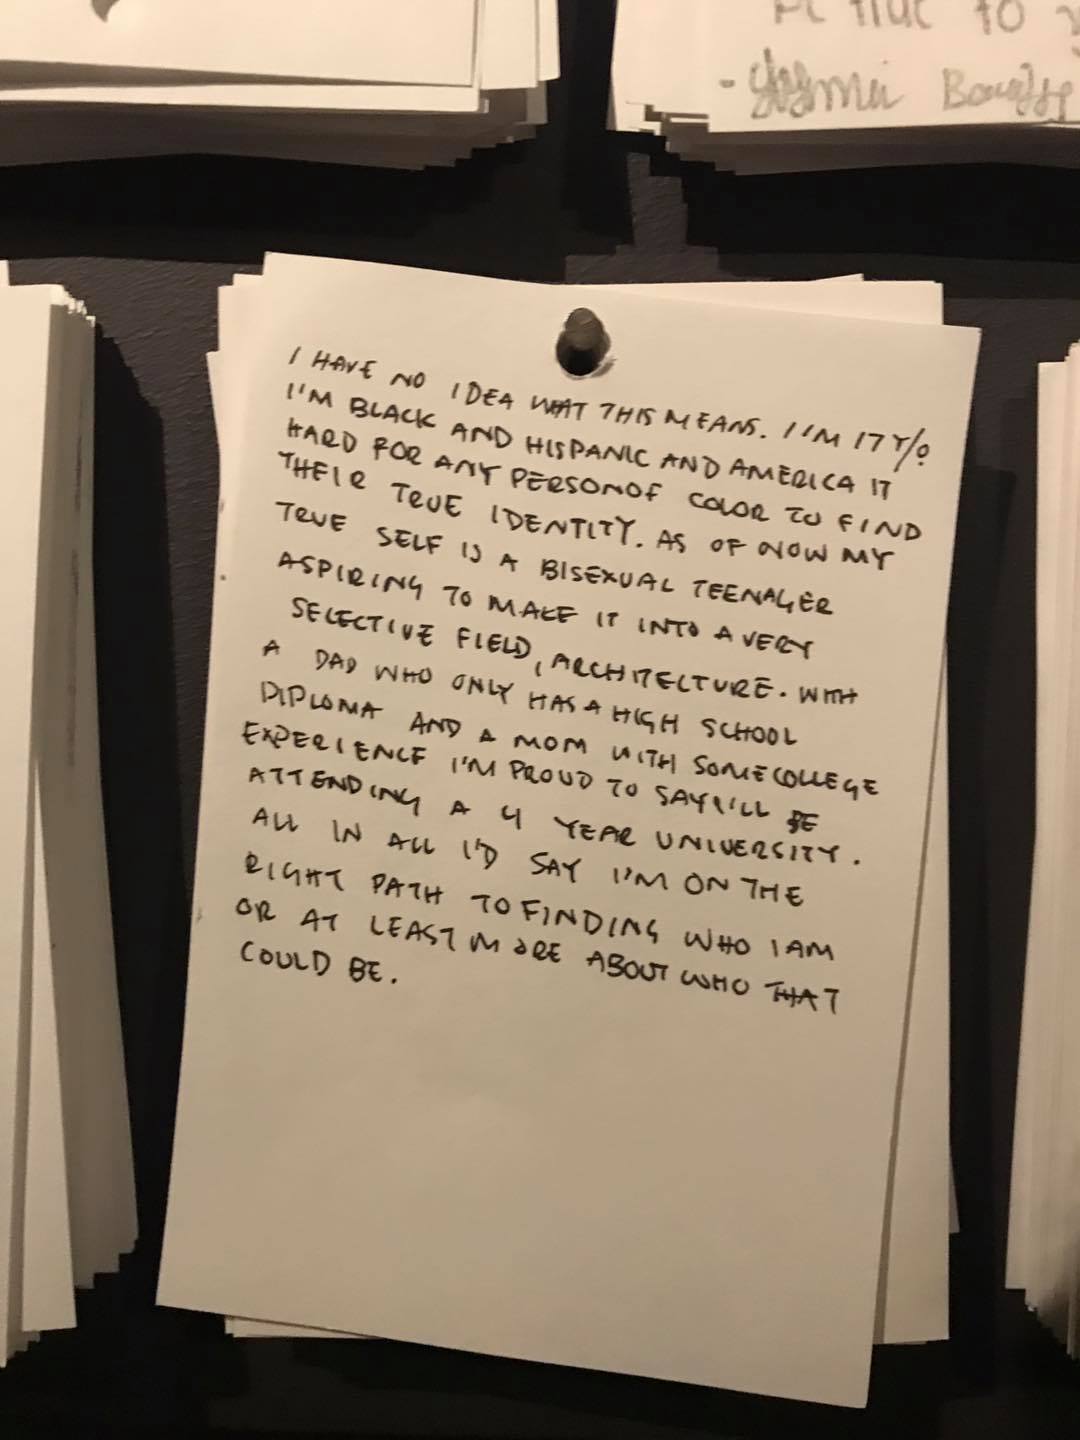 - Bou
I HAVE NO IDEA WHAT THIS MEANS. I I'M 17 Y/O
I'M BLACK AND HISPANIC AND AMERICA IT
HARD FOR ANY PERSON OF COLOR TO FIND
THEIR TRUE IDENTITY. AS OF NOW MY
TRUE SELF IS A BISEXUAL TEENAGER
ASPIRING TO MAKE IT INTO A VERY
SELECTIVE FIELD, ARCHITECTURE. WITH
A DAD WHO ONLY HAS A HIGH SCHOOL
DIPLOMA AND A MOM WITH SOME COLLEGE
EXPERIENCE I'M PROUD TO SAY I'LL BE
ATTENDING A 4 YEAR UNIVERSITY.
ALL IN ALL I'D SAY I'M ON THE
RIGHT PATH TO FINDING WHO I AM
OR AT LEAST MORE ABOUT WHO THAT
COULD BE.